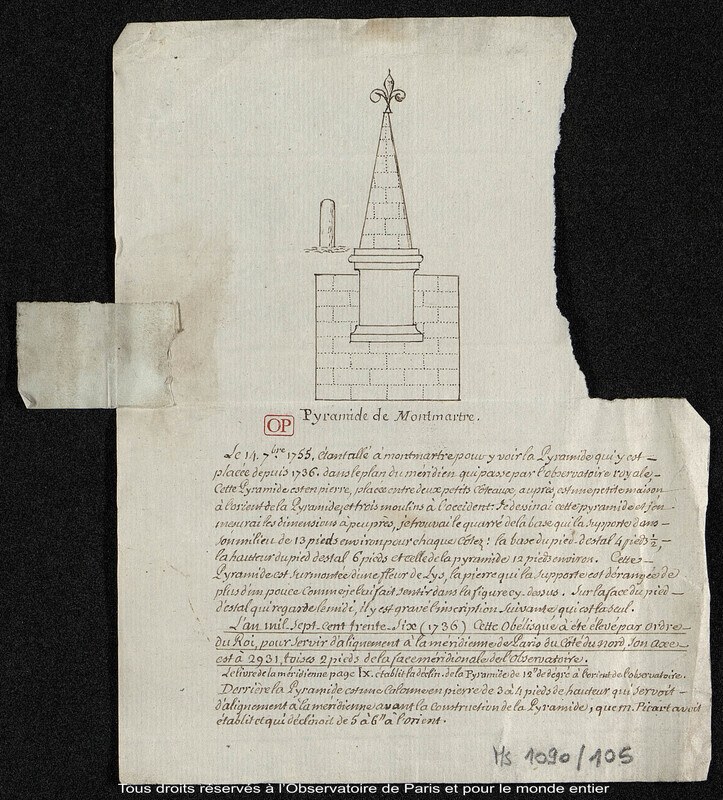 Pyramide de Montmartre.
OP
Le 14. 7bre 1755. étant allé à montmartre pour y voir la Pyramide qui y est
placée depuis 1736. dans le plan du méridien qui passe par l'observatoire royale,
Cette Pyramide est en pierre, placée entre deux petits côteaux, auprès, est une petite maison
à l'orient de la Pyramide, et trois moulins à l'occident. Je dessinai cette pyramide et j'en
mesurai les dimensions à peu près, je trouvai le quarré de la base qui la supporte dans
son milieu de 13 pieds environ pour chaque Côtez: la base du pied-destal 4 pieds ½,
la hauteur du pied destal 6 pieds et celle de la pyramide 12 pieds environ. Cette
Pyramide est surmontée d'une fleur de Lys, la pierre qui la supporte est dérangée de
plus d'un pouce comme je l'ai fait sentir dans la figure cy-dessus. Sur la face du pied
destal qui regarde le midi, il y est gravé l'inscription suivante qui est la seul.
L'an mil. sept. cent trente. Six (1736) Cette Obélisque à été élevé par ordre
du Roi, pour servir d'alignement à la méridienne de Paris du Côté du nord, Son axe
est à 2931, toises 2 pieds de la face méridionale de l'observatoire.
Le livre de la méritienne page IX. établit la déclin. de la Pyramide de 12" de dégré à l'orient de l'observatoire.
Derrière la Pyramide est une Colonne en pierre de 3 à 4 pieds de hauteur qui servoit
d'alignement à la meridienne avant la construction de la Pyramide, que m. Picart avoit
établit et qui déclinoit de 5 à 6" à l'orient.
Ms 1090/105
Tous droits réservés à l'Observatoire de Paris et pour le monde entier